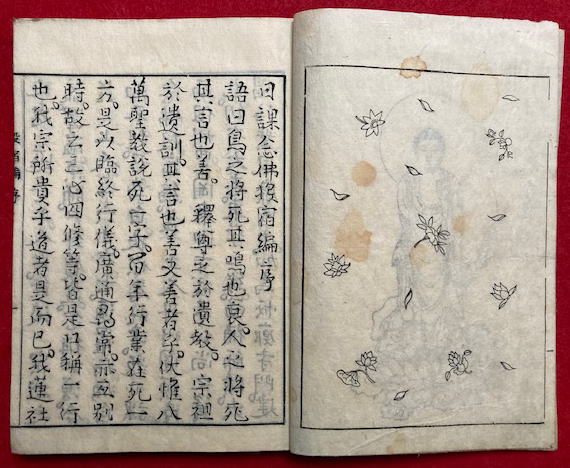 日課念佛投宿編序
語曰鳥之將死其鳴也哀人之將死
其言也善釋尊之於遺教宗祖
於遺訓其言也善又善者乎伏惟八
萬聖教說死之一字百年行業在死一
方是以臨終行儀廣通尋常亦互別
時故云三心四修等皆是只稱一行
也我宗所貴乎道者是而已我蓮社